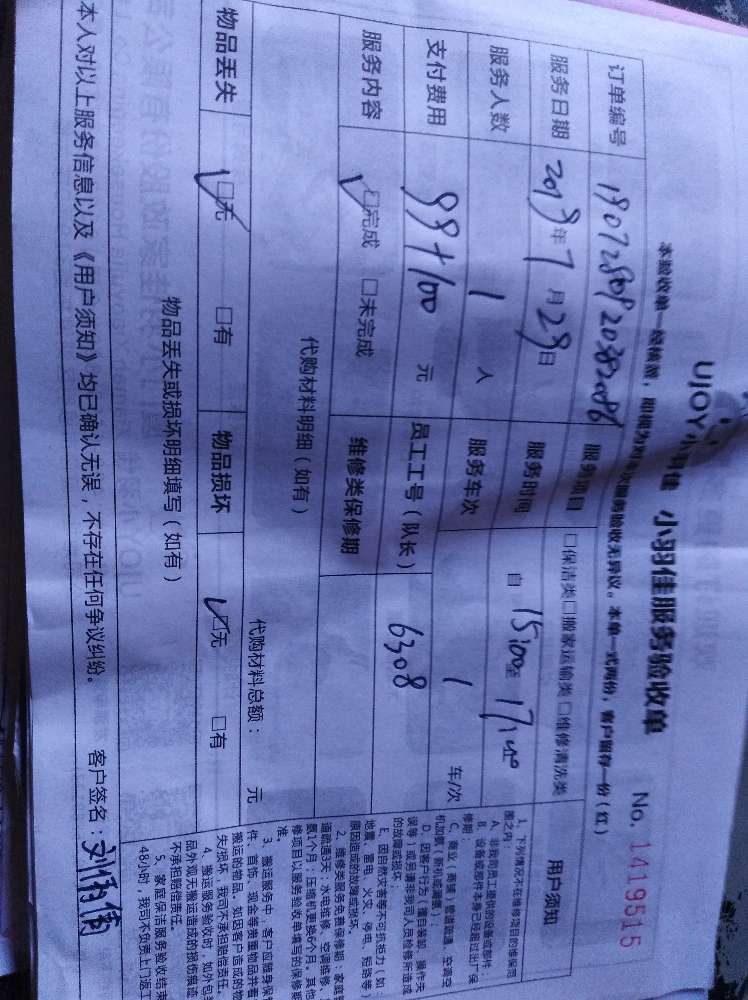 UJOY小羽佳 小羽佳服务验收单 No. 1419515
本验收单一经核签，即视为对本次服务验收无异议。本单一式两份，客户留存一份（红）
订单编号 服务项目 □保洁类□搬家运输类□维修清洗类
服务日期 2019年7月29日 服务时间 自 15:00至
服务人数 1 人 服务车次 1 车/次
支付费用 99+100 元 员工工号（队长） 6308
服务内容 □完成 □未完成 维修类保修期
代购材料明细（如有）
代购材料总额： 元
物品丢失 □无 □有 物品损坏 □无 □有
物品丢失或损坏明细填写（如有）
本人对以上服务信息以及《用户须知》均已确认无误，不存在任何争议纠纷。 客户签名：
用户须知
1、下列情况不在维修项目的维保范
围之内：
A、非我司员工提供的设备或部件；
B、设备或部件本身已经超过出厂保
修期；
C、商业（商铺）管道疏通，空调空
机加氨（新机或漏氨）；
D、因客户行为（擅自装卸、操作失
误等）或另请非我司人员检修所造成
的故障或损坏；
E、因自然灾害等不可抗拒力（如：
地震、雷电、火灾、停电、短路等）
原因造成的故障或损坏。
2、维修类服务免费保修期：家庭管
道疏通3天；水电维修、空调维修、
氨1个月；压缩机更换6个月。其他
修项目以服务验收单填写的保修期
准
3、搬运服务中，客户应随身保
件、首饰、现金等贵重物品并看
搬运的物品。如因客户造成的物
失/损坏，我司不承担赔偿责任。
4、搬运服务验收时，如外包装
品外观无搬运造成的损伤痕迹
不承担赔偿责任。
5、家庭保洁服务验收结束
48小时，我司不负责上门返工